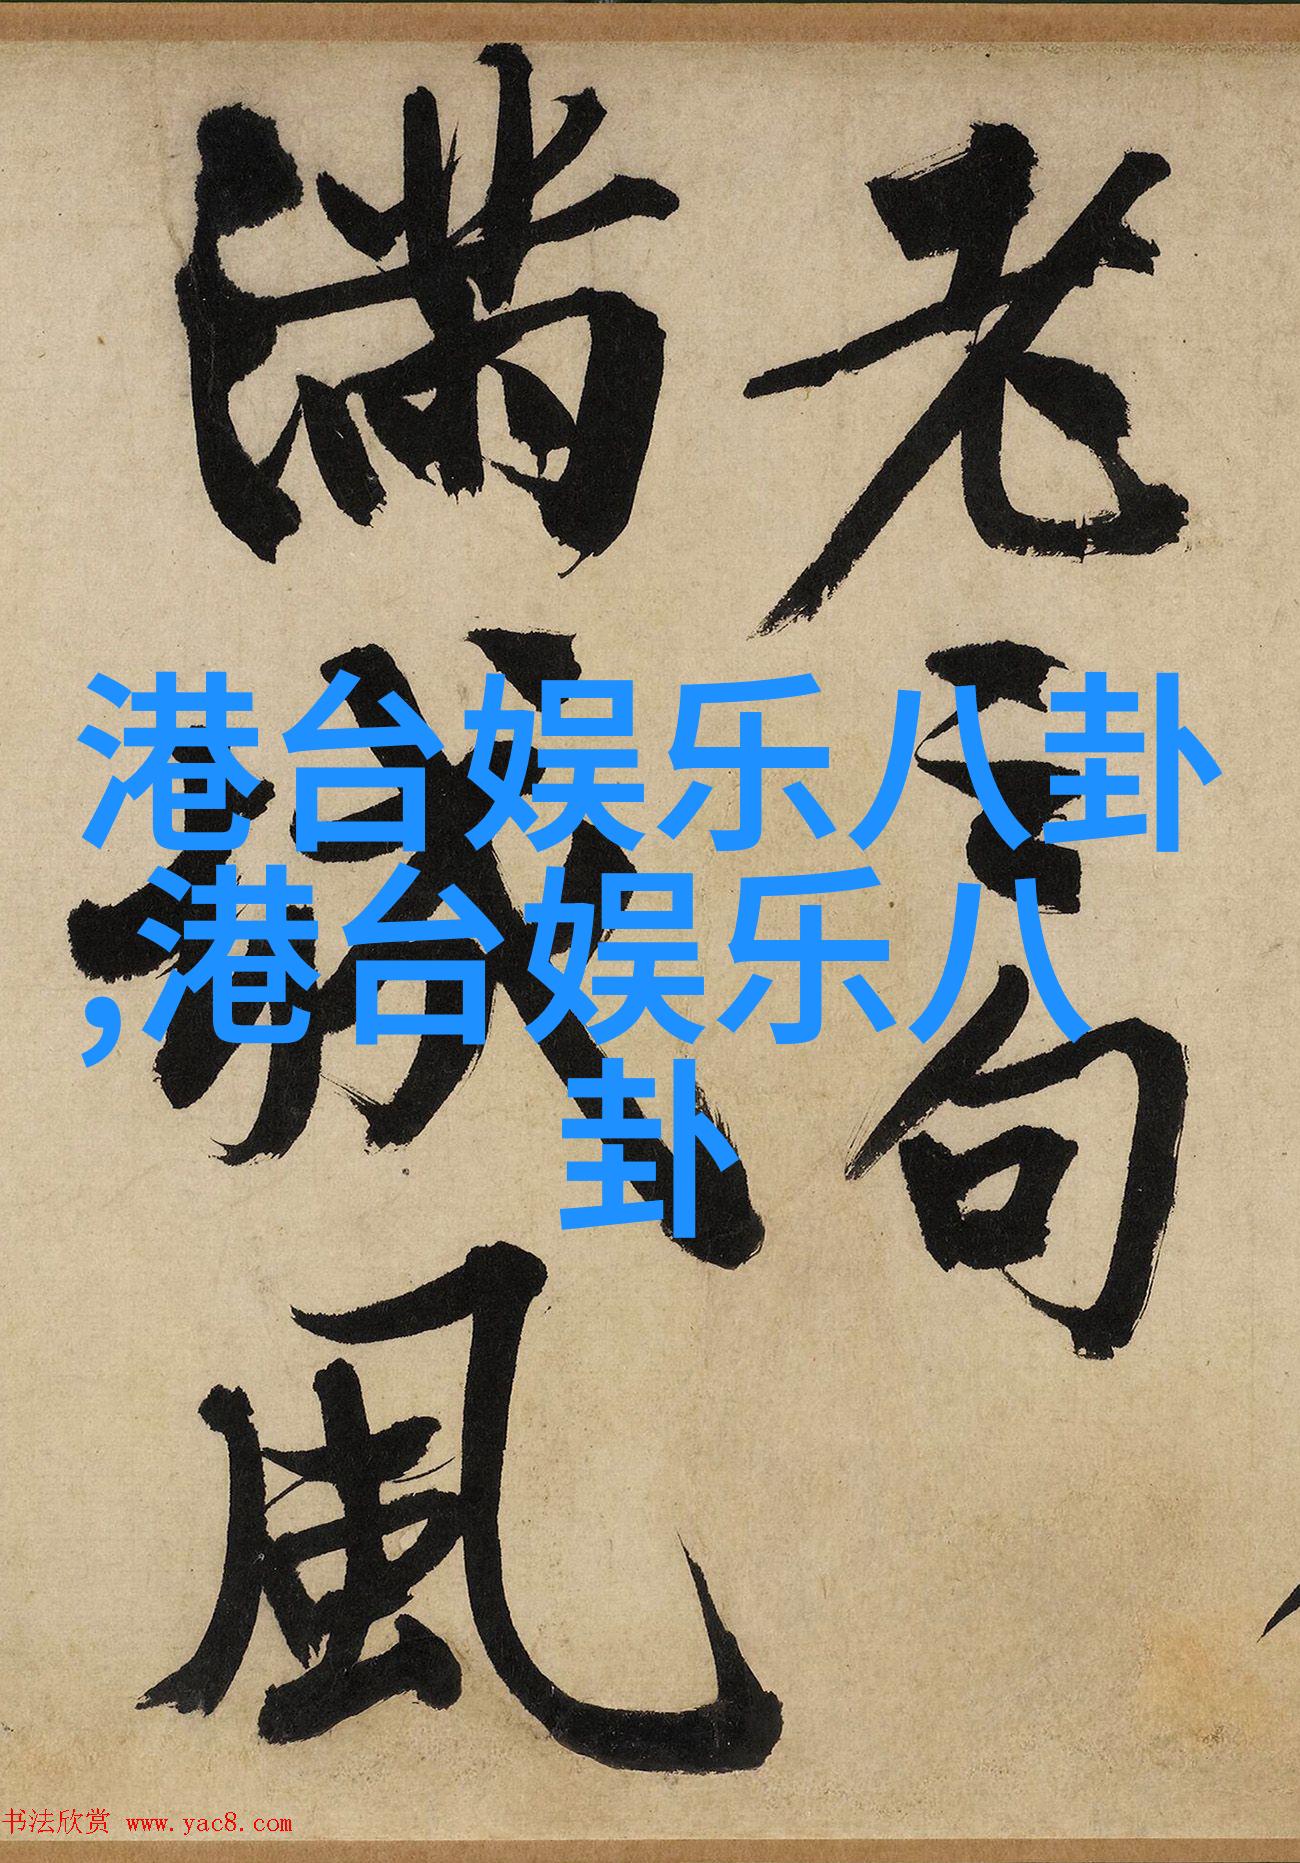 老 句
滿城風
港台娱乐八卦
,港台娱乐八
卦
书法欣赏 www.yac8.com